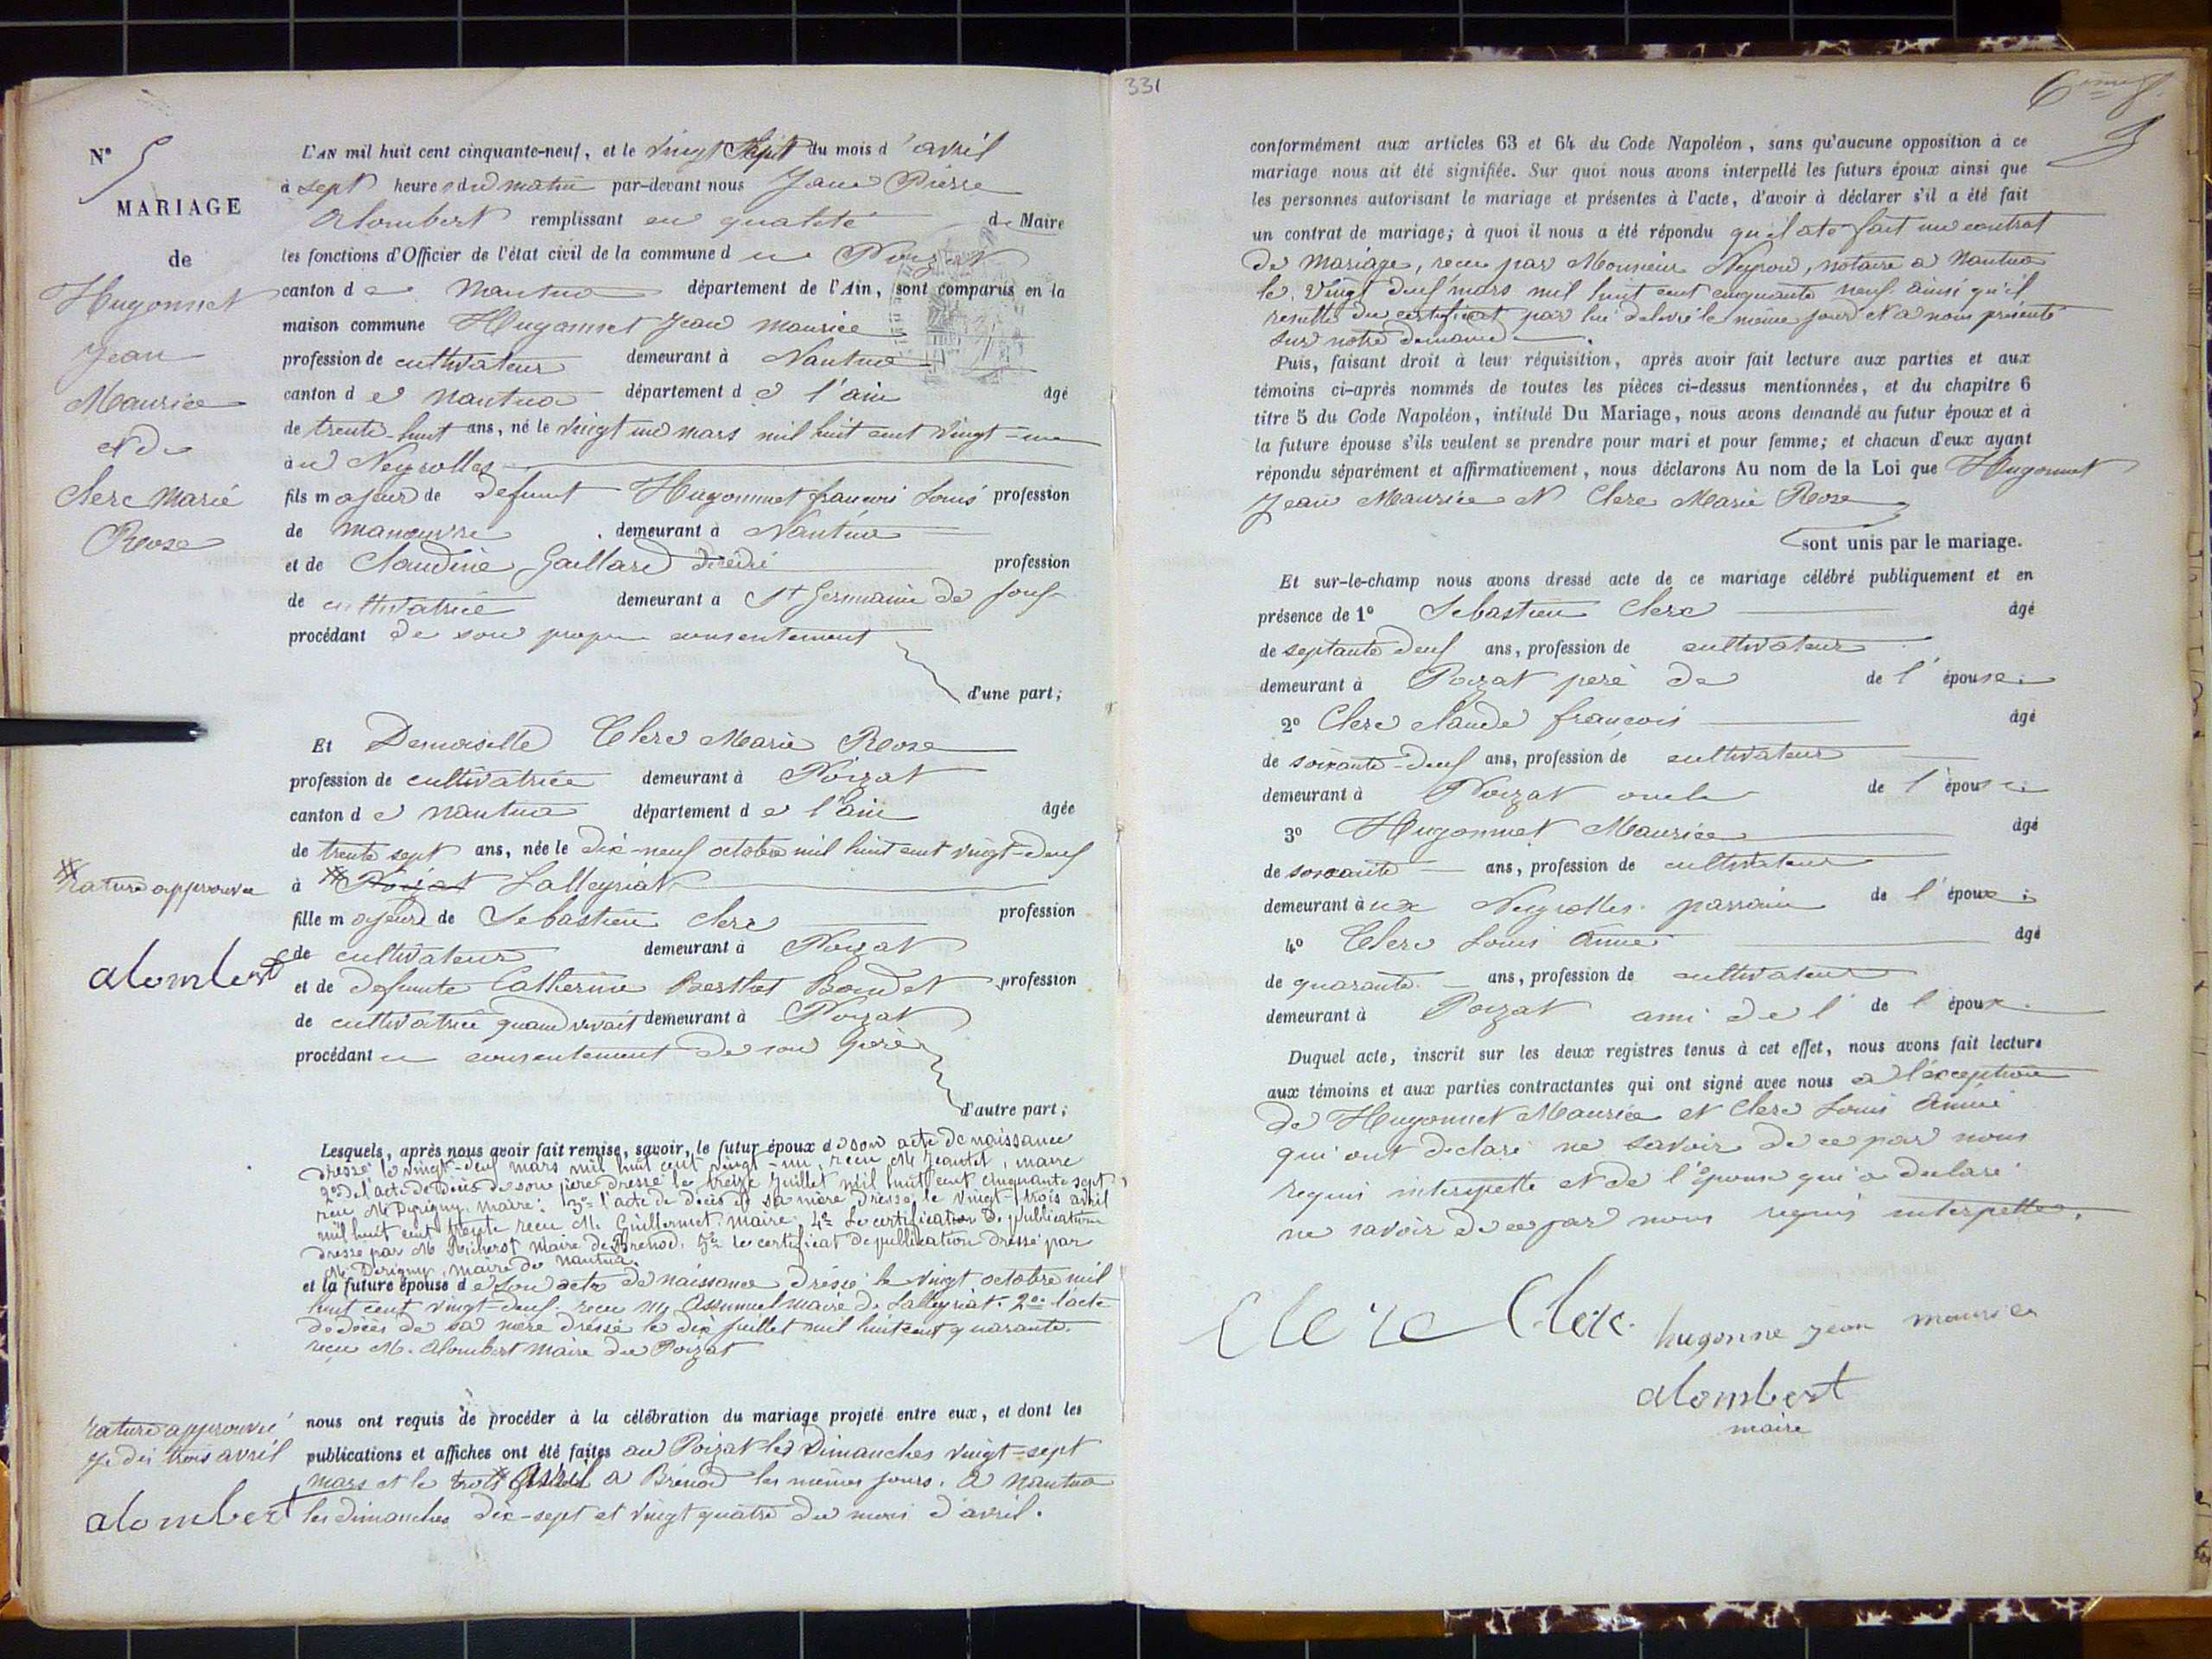 N° 5
MARIAGE
de
Hugonnet
Jean
Maurice
et de
Clerc Marie
Rose
L'AN mil huit cent cinquante-neuf, et le vingt sept du mois d'avril
à sept heures du matin par-devant nous Jean Pierre
Alombert remplissant en qualité de Maire
les fonctions d'Officier de l'état civil de la commune du Poizat
canton de Nantua département de l'Ain, sont comparus en la
maison commune Hugonnet Jean Maurice
profession de cultivateur demeurant à Nantua
canton de Nantua département de l'ain âgé
de trente-huit ans, né le vingt un mars mil huit cent vingt-un
aux Neyrolles
fils majeur de defunt Hugonnet françois Louis profession
de manœuvre demeurant à Nantua
et de Claudine Gaillard décédé profession
de cultivatrice demeurant à St Germain de Joux
procédant de son propre consentement
d'une part;
Et Demoiselle Clerc Marie Rose
profession de cultivatrice demeurant à Poizat
canton de Nantua département de l'ain âgée
de trente sept ans, née le dix-neuf octobre mil huit cent vingt-deux
à Poizat Lalleyriat
rature approuvée
fille majeure de Sebastien Clerc profession
de cultivateur demeurant à Poizat
alombert
et de defunte Catherine Berthet Bondet profession
de cultivatrice quand vivait demeurant à Poizat
procédant du consentement de son père
d'autre part;
Lesquels, après nous avoir fait remise, savoir, le futur époux de son acte de naissance
dressé le vingt-deux mars mil huit cent vingt-un, recu M Jeantet, maire
2° de l'acte de Décès de son père dressé le treize Juillet mil huit cent cinquante sept
recu M. Derigny, maire; 3° l'acte de décès de sa mère dressé le vingt-trois avril
mil huit cent trente recu M. Guillermet, maire. 4° Le certification de publication
dressé par M. maire de Brenod. 5° le certificat de publication dressé par
M. Derigny, maire de Nantua.
et la future épouse de son acte de naissance dressé le vingt octobre mil
huit cent vingt-deux recu M. maire de Lalleyriat. 2° l'acte
de décès de sa mère dressé le dix juillet mil huit cent quarante.
recu M. Alombert maire du Poizat
nous ont requis de procéder à la célébration du mariage projeté entre eux, et dont les
publications et affiches ont été faites au Poizat les Dimanches vingt-sept
mars et le trois avril a Brénod les mêmes jours. A Nantua
les dimanches dix-sept et vingt quatre du mois d'avril.
rature approuvée
trois avril
alombert
331
6eme f
conformément aux articles 63 et 64 du Code Napoléon, sans qu'aucune opposition à ce
mariage nous ait été signifiée. Sur quoi nous avons interpellé les futurs époux ainsi que
les personnes autorisant le mariage et présentes à l'acte, d'avoir à déclarer s'il a été fait
un contrat de mariage; à quoi il nous a été répondu qu'il a été fait un contrat
de mariage, recu par Monsieur Neyron, notaire a Nantua
le vingt deux mars mil huit cent cinquante neuf. ainsi qu'il
resulte du certificat par lui delivré le même jour et a nous présenté
sur notre demande.
Puis, faisant droit à leur réquisition, après avoir fait lecture aux parties et aux
témoins ci-après nommés de toutes les pièces ci-dessus mentionnées, et du chapitre 6
titre 5 du Code Napoléon, intitulé Du Mariage, nous avons demandé au futur époux et à
la future épouse s'ils veulent se prendre pour mari et pour femme; et chacun d'eux ayant
répondu séparément et affirmativement, nous déclarons Au nom de la Loi que Hugonnet
Jean Maurice et Clerc Marie Rose
sont unis par le mariage.
Et sur-le-champ nous avons dressé acte de ce mariage célébré publiquement et en
présence de 1° Sebastien Clerc âgé
de septante deux ans, profession de cultivateur
demeurant à Poizat père de de l'épouse;
2° Clerc claude françois âgé
de soixante-deux ans, profession de cultivateur
demeurant à Poizat oncle de l'épouse;
3° Hugonnet Maurice âgé
de soixante ans, profession de cultivateur
demeurant aux Neyrolles parrain de l'époux;
4° Clerc Louis Aimé âgé
de quarante ans, profession de cultivateur
demeurant à Poizat ami de l' de l'époux.
Duquel acte, inscrit sur les deux registres tenus à cet effet, nous avons fait lecture
aux témoins et aux parties contractantes qui ont signé avec nous a l'exception
de Hugonnet Maurice et Clerc Louis Aimé
qui ont declaré ne savoir de ce par nous
requis interpellé et de l'épouse qui a declaré
ne savoir de ce par nous requis interpellée.
Clerc Clerc hugonne jean maurice
alombert
maire